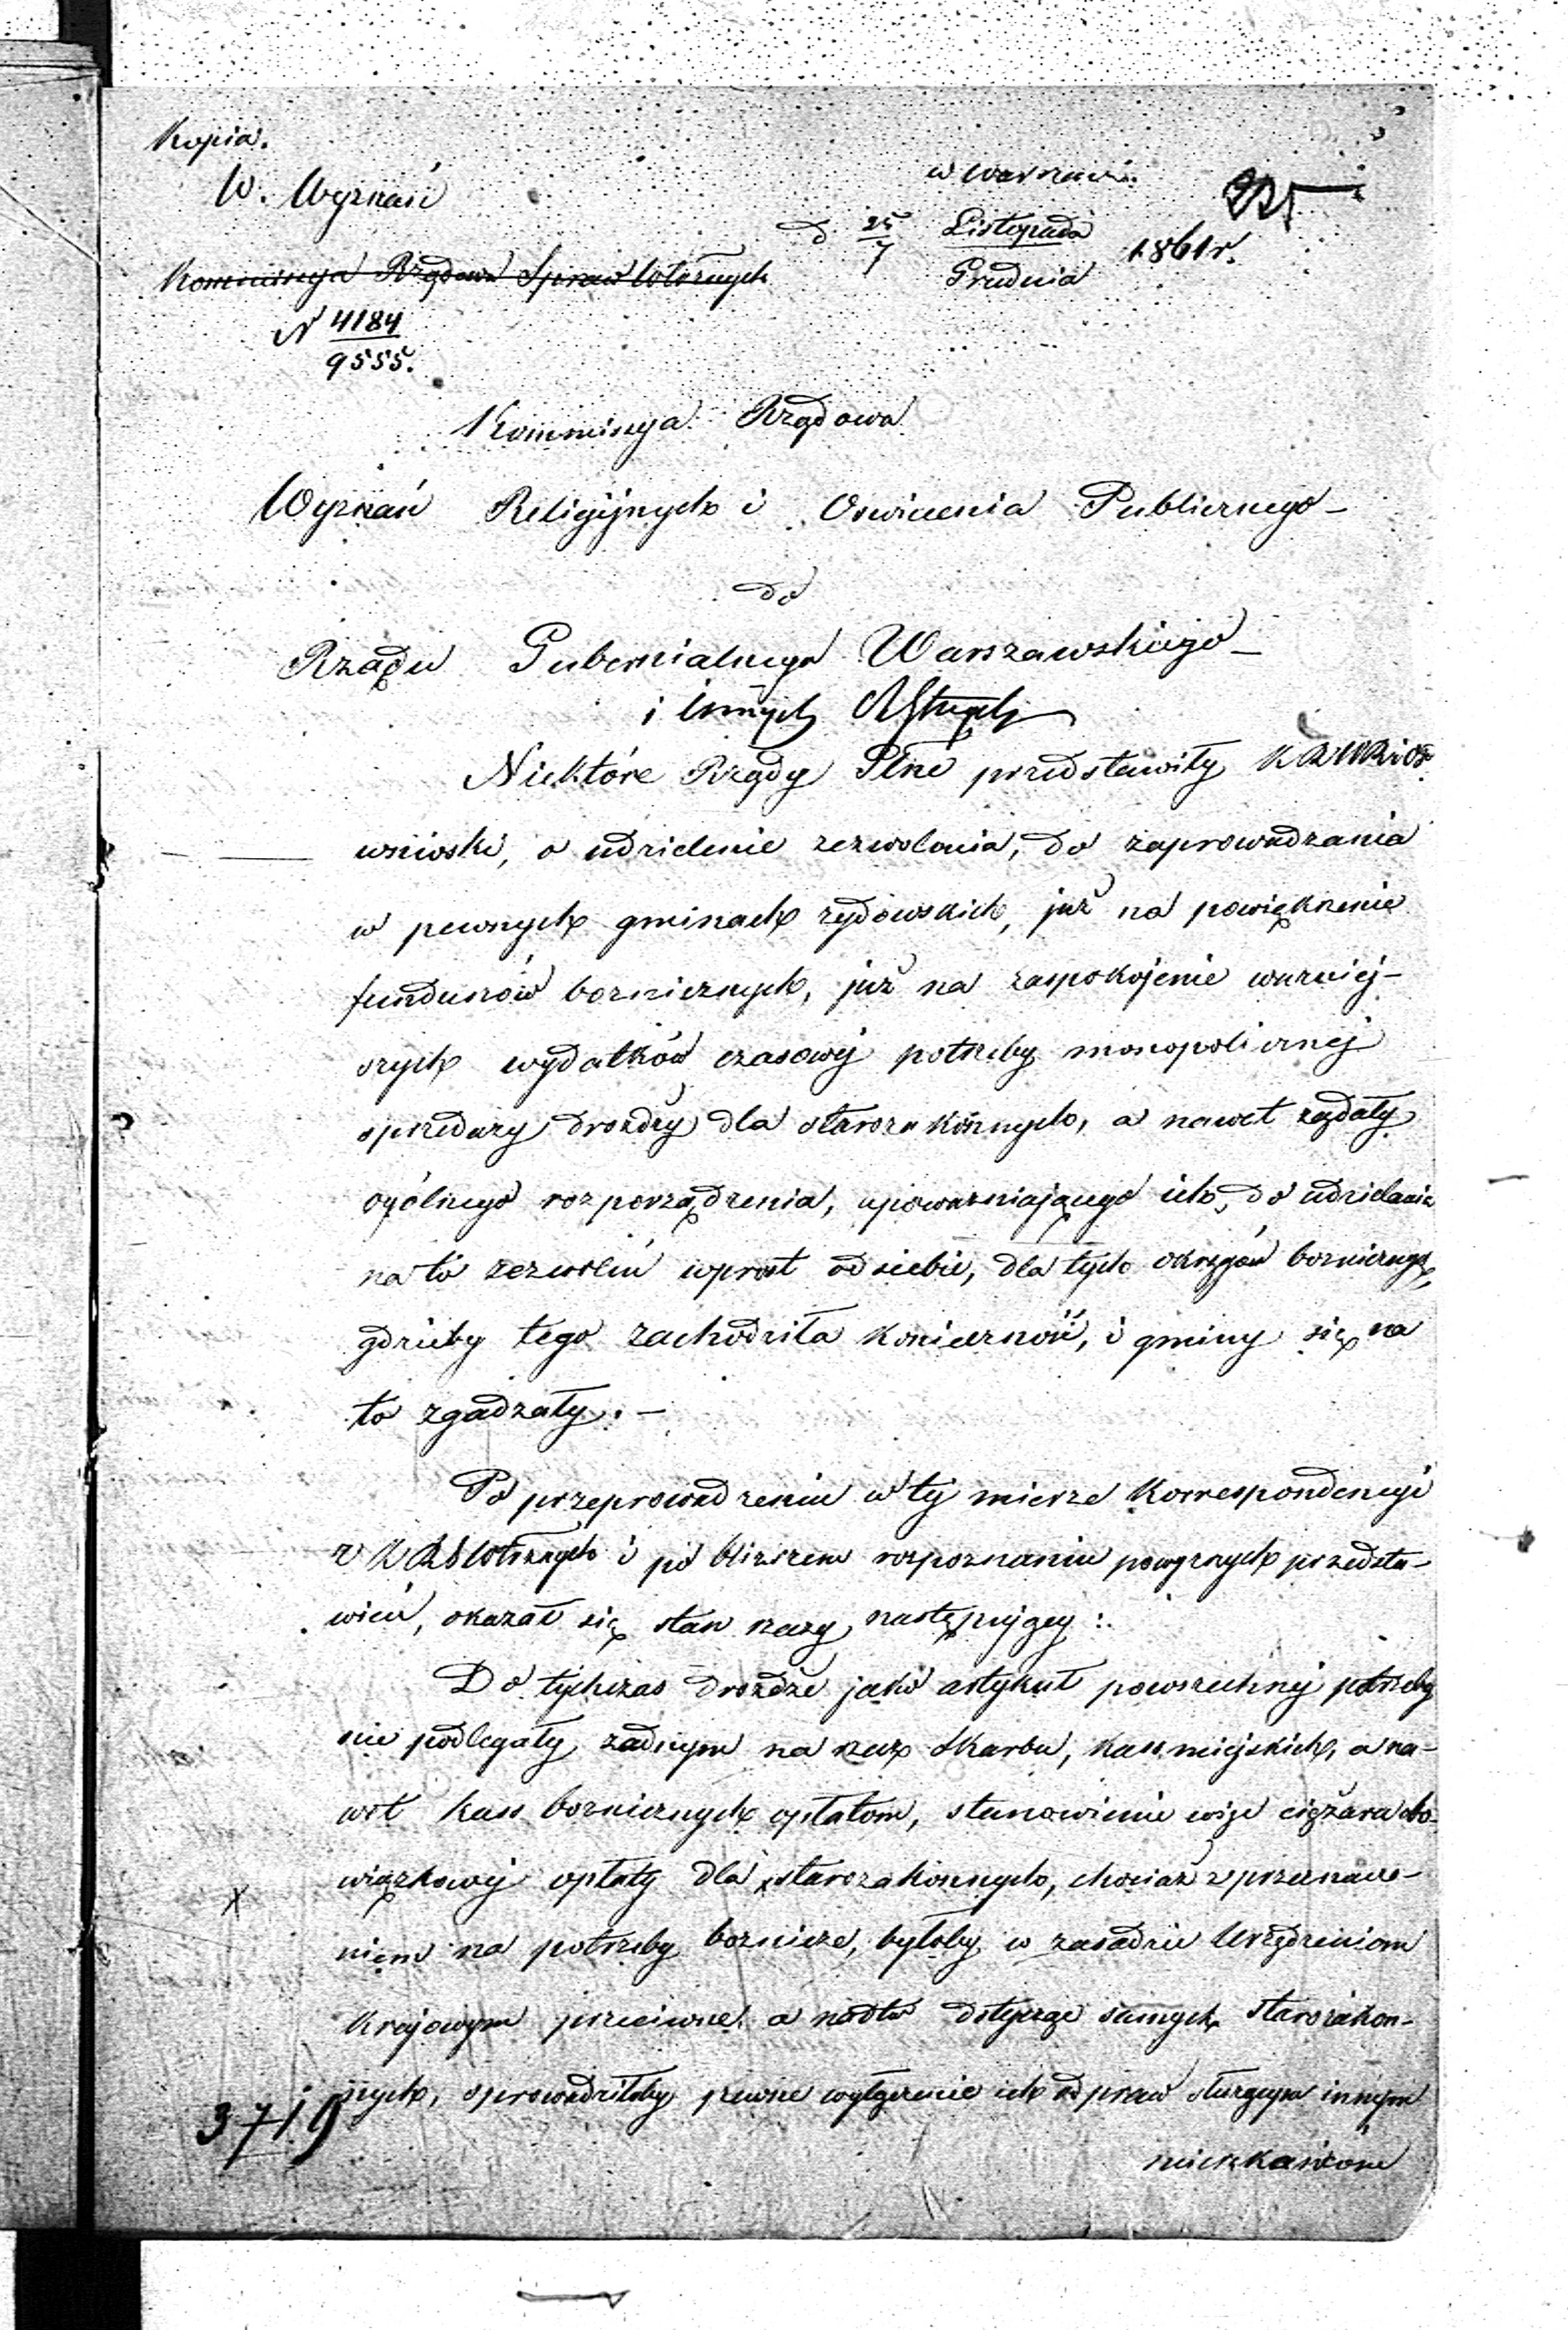 Kopia.
w Warszawie
W. Wyznań
d 25/7 Listopada/Grudnia 1861 r.
Kommissya Rządowa Spraw Wewnętrznych
N 4184/9555.
Kommissya Rządowa
Wyznań Religijnych i Oswiecenia Publicznego –
do
Rządu Gubernialnego Warszawskiego –
i innych
Niektóre Rządy Glne przedstawiły KRWRiOP
wnioski, o udzielenie zezwolenia, do zaprowadzania
w pewnych gminach żydowskich, już na powiększenie
funduszów bożniczych, już na zaspokojenie ważniej-
szych wydatków czasowej potrzeby monopolicznej
sprzedaży drożdży dla starozakonnych, a nawet żądały
ogólnego rozporządzenia, upoważniającego ich, do udzielania
na to zezwoleń wprost od siebie, dla tych okręgów bożniczych,
gdzieby tego zachodziła konieczność, i gminy się na
to zgadzały. –
Po przeprowadzeniu w tej mierze korrespondencyi
z KRS Wewnętrznych i po bliższem rozpoznaniu powyższych przedsta-
wień, okazał się stan rzeczy następujący :
Do tychczas drożdże jako artykuł powszechnej potrzeby
nie podlegały żadnym na rzecz Skarbu, kass miejskich, a na-
wet kass bożniczych opłatom, stanowienie więc ciężaru obo-
wiązkowej opłaty dla starozakonnych, chociaż z przeznacze-
niem na potrzeby bożnicze, byłoby w zasadzie Urządzeniom
Krajowym przeciwne, a nadto dotycząc samych starozakon-
nych, sprowadziłoby pewne wyłączenie ich od praw służących innym
mieszkańcom
3719